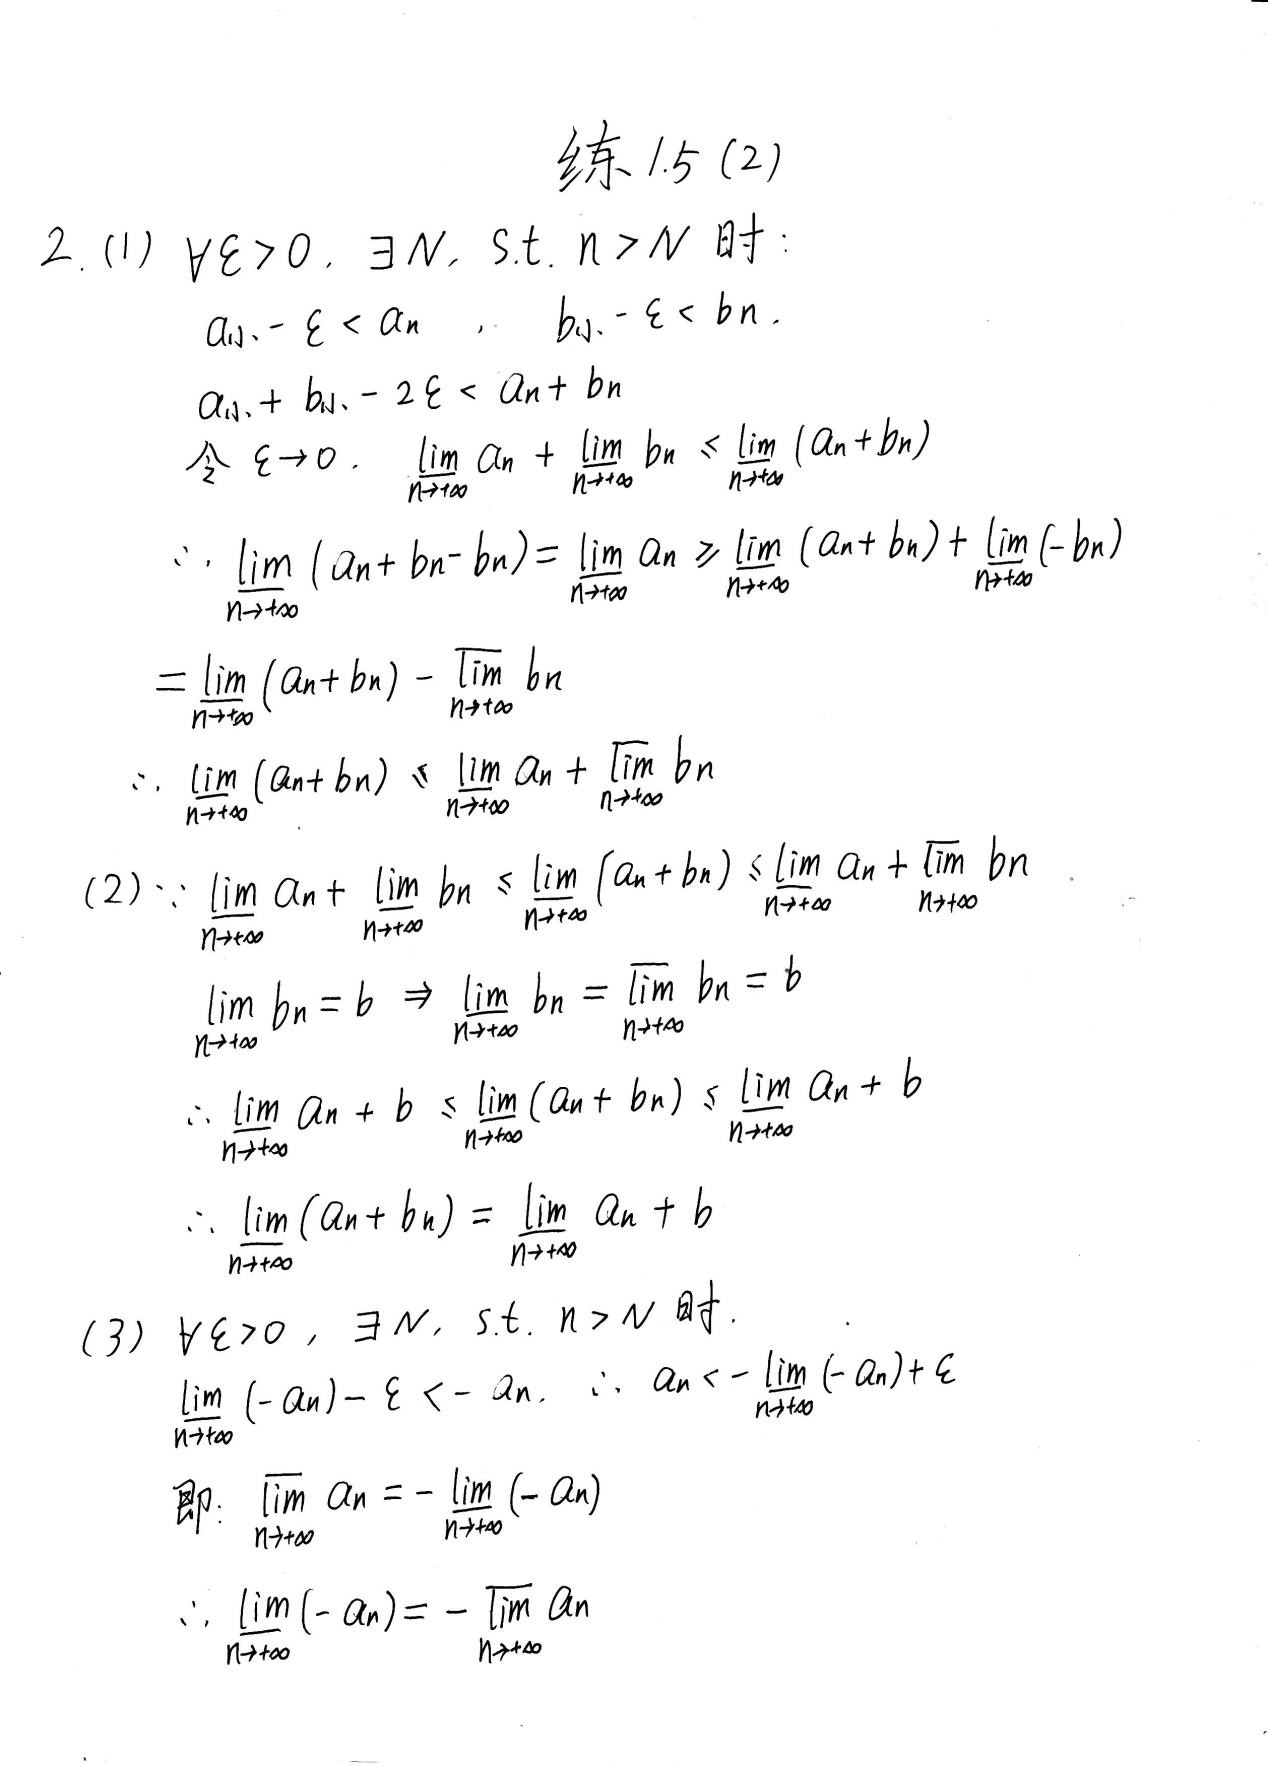 练1.5(2)
2.(1) ∀ε>0, ∃N, s.t. n>N 时:
a下.-ε<an, b下.-ε<bn.
a下.+b下.-2ε<an+bn
令 ε→0. \underline{lim}_{n→+∞} an + \underline{lim}_{n→+∞} bn ≤ \underline{lim}_{n→+∞} (an+bn)
∴ \underline{lim}_{n→+∞} (an+bn-bn) = \underline{lim}_{n→+∞} an ≥ \underline{lim}_{n→+∞} (an+bn) + \underline{lim}_{n→+∞} (-bn)
= \underline{lim}_{n→+∞} (an+bn) - \overline{lim}_{n→+∞} bn
∴ \underline{lim}_{n→+∞} (an+bn) ≤ \underline{lim}_{n→+∞} an + \overline{lim}_{n→+∞} bn
(2) ∵ \underline{lim}_{n→+∞} an + \underline{lim}_{n→+∞} bn ≤ \underline{lim}_{n→+∞} (an+bn) ≤ \underline{lim}_{n→+∞} an + \overline{lim}_{n→+∞} bn
lim_{n→+∞} bn = b ⇒ \underline{lim}_{n→+∞} bn = \overline{lim}_{n→+∞} bn = b
∴ \underline{lim}_{n→+∞} an + b ≤ \underline{lim}_{n→+∞} (an+bn) ≤ \underline{lim}_{n→+∞} an + b
∴ \underline{lim}_{n→+∞} (an+bn) = \underline{lim}_{n→+∞} an + b
(3) ∀ε>0, ∃N, s.t. n>N 时.
\underline{lim}_{n→+∞} (-an) - ε < -an. ∴ an < -\underline{lim}_{n→+∞} (-an) + ε
即: \overline{lim}_{n→+∞} an = -\underline{lim}_{n→+∞} (-an)
∴ \underline{lim}_{n→+∞} (-an) = -\overline{lim}_{n→+∞} an